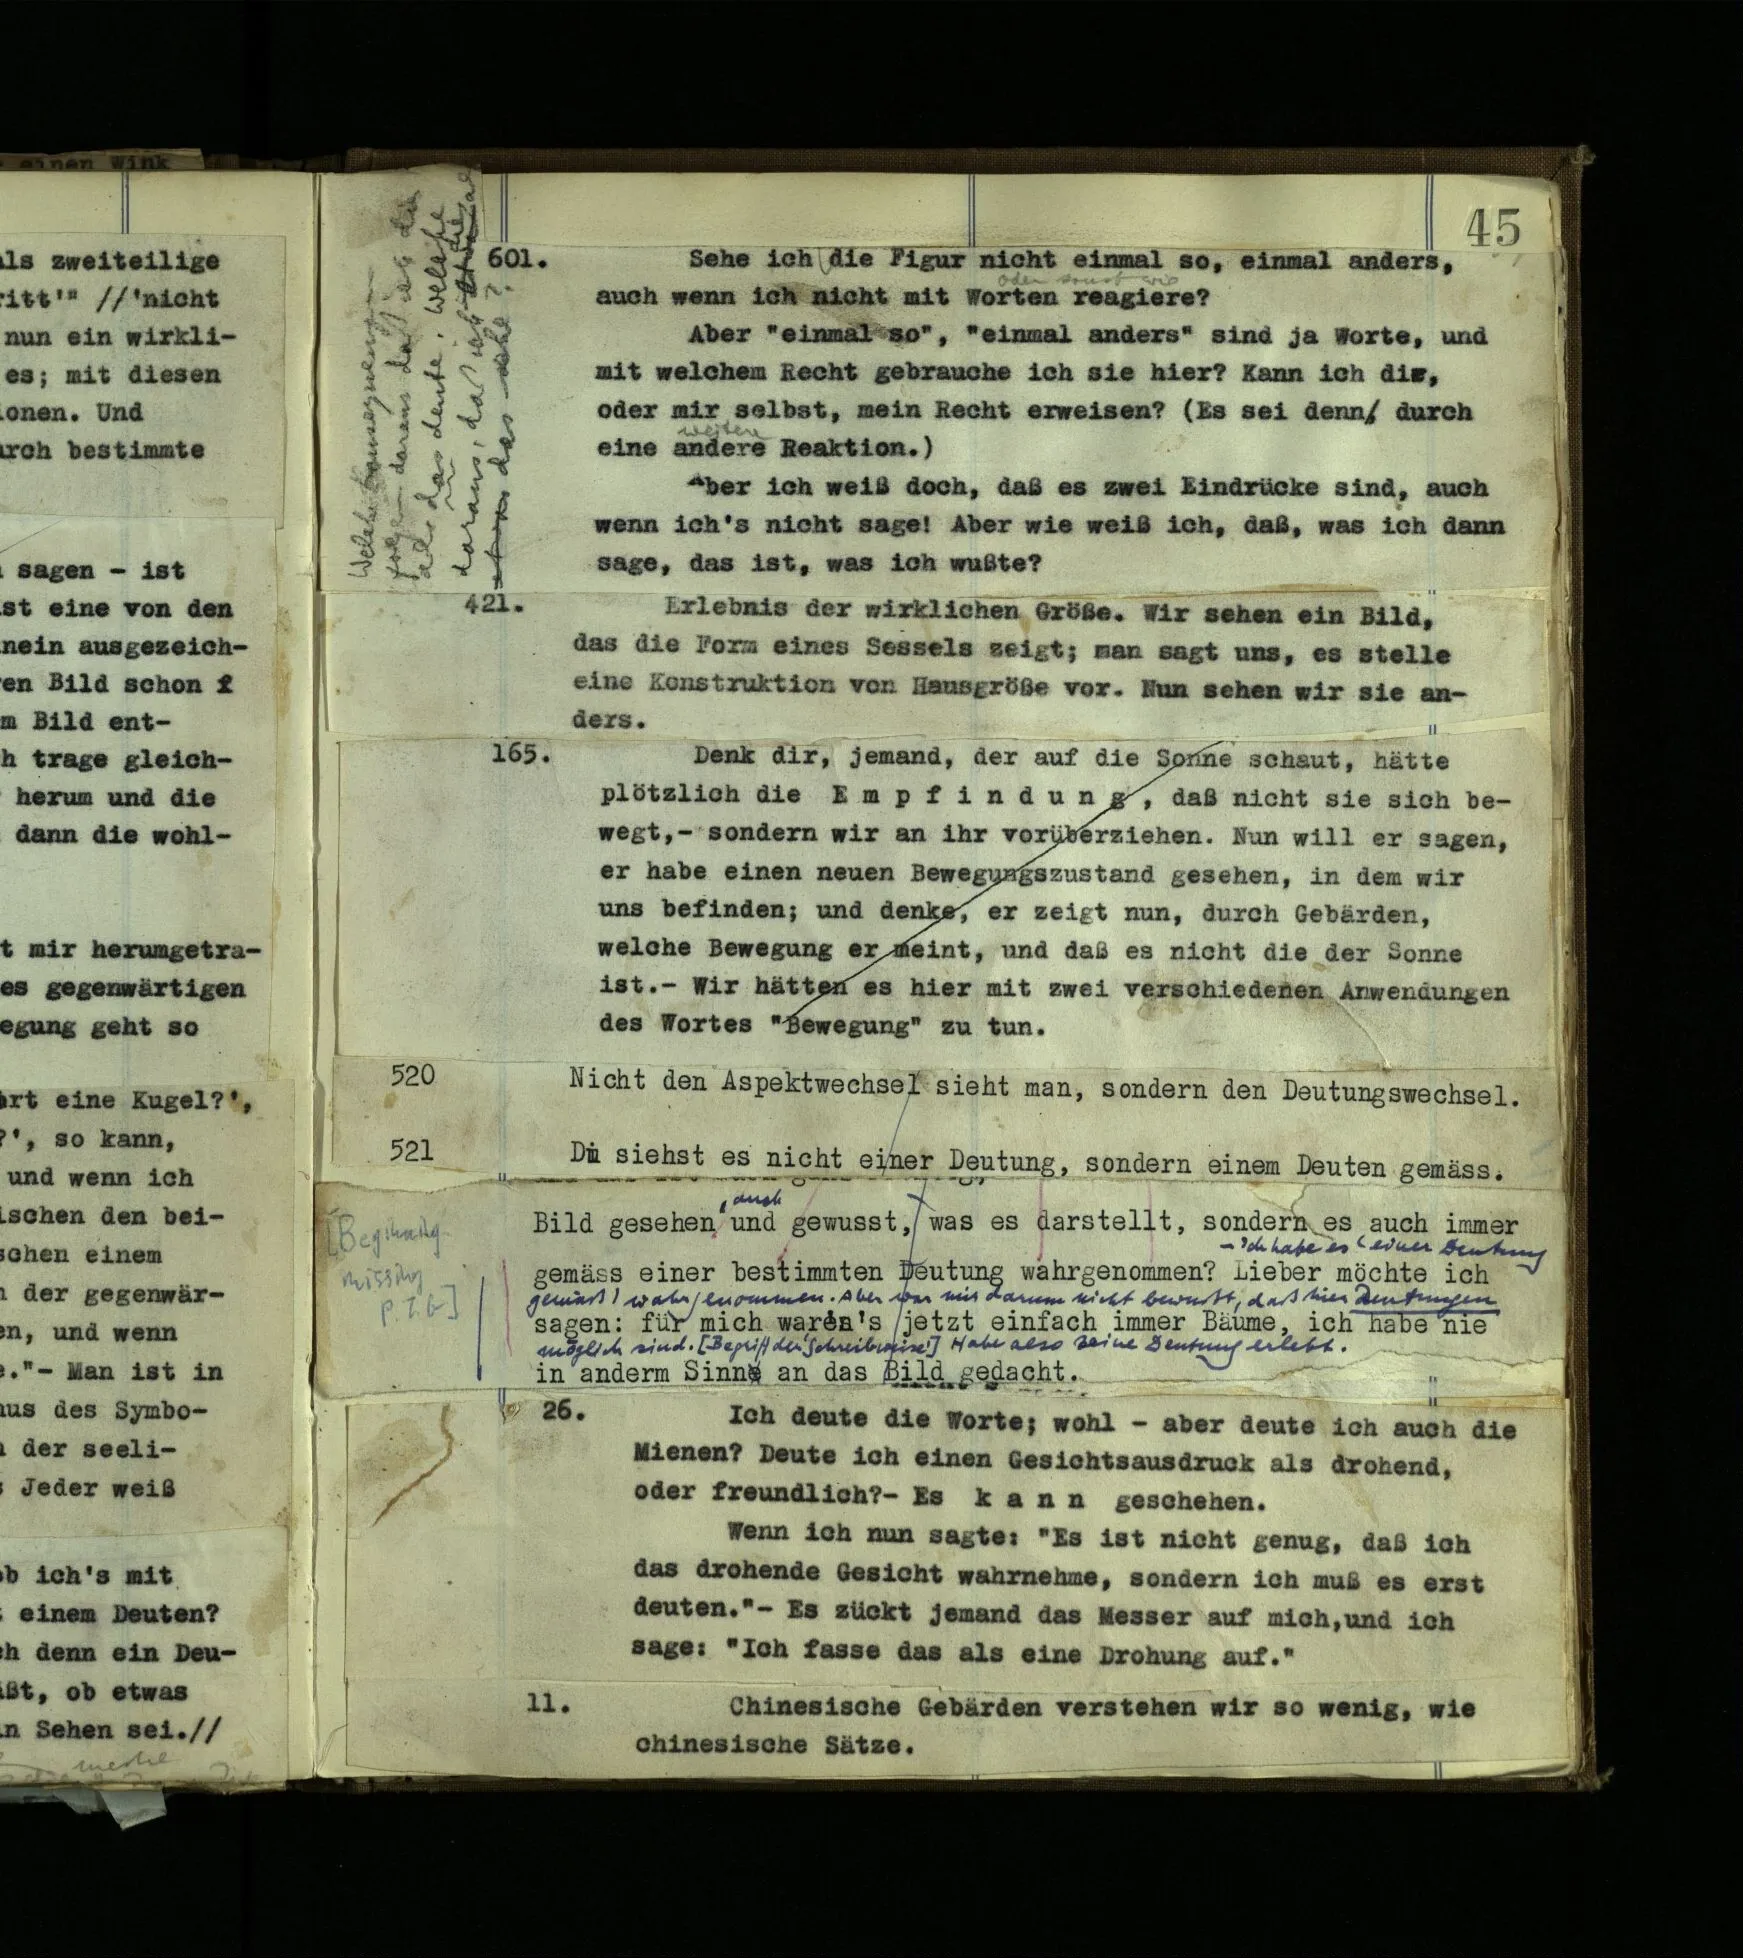 einen Wink
als zweiteilige
ritt'" //'nicht
nun ein wirkli-
es; mit diesen
ionen. Und
urch bestimmte
sagen - ist
ist eine von den
nein ausgezeich-
ren Bild schon f
m Bild ent-
h trage gleich-
herum und die
dann die wohl-
t mir herumgetra-
es gegenwärtigen
egung geht so
art eine Kugel?',
?', so kann,
und wenn ich
ischen den bei-
schen einem
n der gegenwär-
en, und wenn
e."- Man ist in
aus des Symbo-
n der seeli-
s Jeder weiß
ob ich's mit
t einem Deuten?
ch denn ein Deu-
ißt, ob etwas
in Sehen sei.//
45
Welche Consequenzen
folgen daraus daß ich die
als das deute. Welche
daraus, daß ich
das sehe?
601. Sehe ich die Figur nicht einmal so, einmal anders,
oder sonst wie
auch wenn ich nicht mit Worten reagiere?
Aber "einmal so", "einmal anders" sind ja Worte, und
mit welchem Recht gebrauche ich sie hier? Kann ich dir,
oder mir selbst, mein Recht erweisen? (Es sei denn/ durch
weitere
eine andere Reaktion.)
Aber ich weiß doch, daß es zwei Eindrücke sind, auch
wenn ich's nicht sage! Aber wie weiß ich, daß, was ich dann
sage, das ist, was ich wußte?
421. Erlebnis der wirklichen Größe. Wir sehen ein Bild,
das die Form eines Sessels zeigt; man sagt uns, es stelle
eine Konstruktion von Hausgröße vor. Nun sehen wir sie an-
ders.
165. Denk dir, jemand, der auf die Sonne schaut, hätte
plötzlich die E m p f i n d u n g , daß nicht sie sich be-
wegt,- sondern wir an ihr vorüberziehen. Nun will er sagen,
er habe einen neuen Bewegungszustand gesehen, in dem wir
uns befinden; und denke, er zeigt nun, durch Gebärden,
welche Bewegung er meint, und daß es nicht die der Sonne
ist.- Wir hätten es hier mit zwei verschiedenen Anwendungen
des Wortes "Bewegung" zu tun.
520 Nicht den Aspektwechsel sieht man, sondern den Deutungswechsel.
521 Du siehst es nicht einer Deutung, sondern einem Deuten gemäss.
[Beginning
missing
P.T.G]
, auch
Bild gesehen und gewusst, was es darstellt, sondern es auch immer
– 'Ich habe es 'einer Deutung
gemäss einer bestimmten Deutung wahrgenommen? Lieber möchte ich
gemäß' wahrgenommen. Aber war mir darum nicht bewußt, daß hier Deutungen
sagen: für mich waren's jetzt einfach immer Bäume, ich habe nie
möglich sind. [Begriff der 'Schreibweise'] Habe also keine Deutung erlebt.
in anderm Sinne an das Bild gedacht.
26. Ich deute die Worte; wohl - aber deute ich auch die
Mienen? Deute ich einen Gesichtsausdruck als drohend,
oder freundlich?- Es k a n n geschehen.
Wenn ich nun sagte: "Es ist nicht genug, daß ich
das drohende Gesicht wahrnehme, sondern ich muß es erst
deuten."- Es zückt jemand das Messer auf mich,und ich
sage: "Ich fasse das als eine Drohung auf."
11. Chinesische Gebärden verstehen wir so wenig, wie
chinesische Sätze.